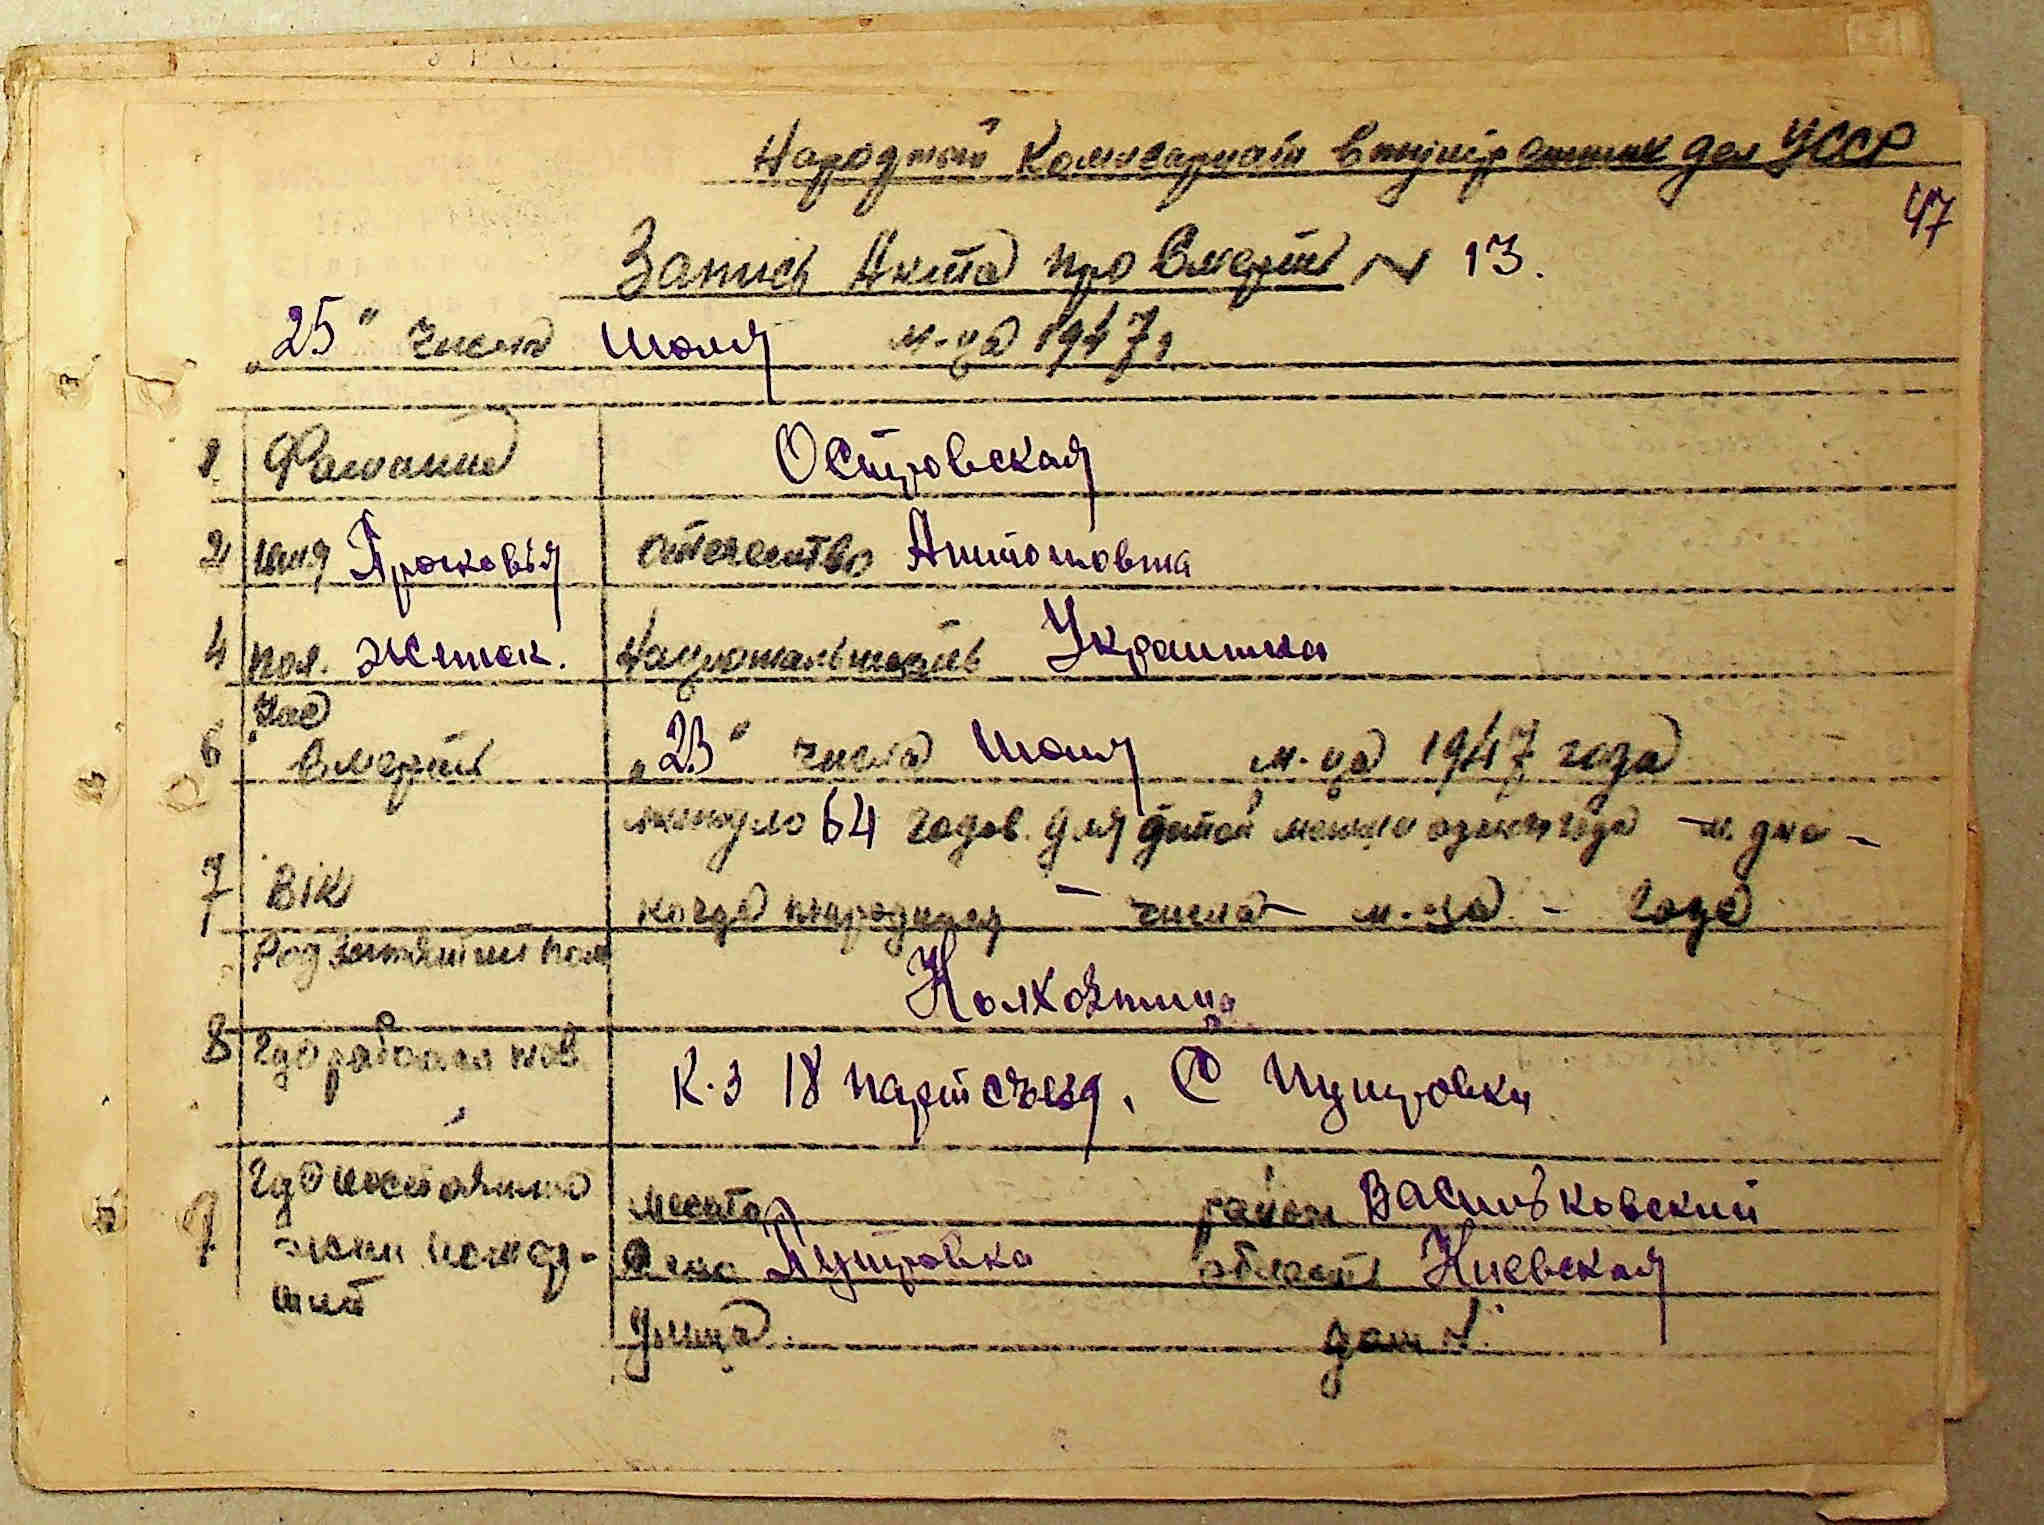 Народный Комисариат внутренних дел УССР
47
Запись Акта про Смерть N 13.
„25" числа Июля м-ца 1947 г.
1. Фамилия Островская
2 имя Прасковья отечество Антоновна
4 пол. женск. Национальность Украинка
Час
6 смерти „23" числа Июля м-ца 1947 года
минуло 64 годов. для детей меньше одного года – м. дня –
7 Вік
когда народился – числа – м-ца – года
Род занятий
Колхозница
8 Где работал
К-з 18 партсъезд. С Путровки
Где постоянно место район Васильковский
9 жил
Село Путровка область Киевская
Улица дом №